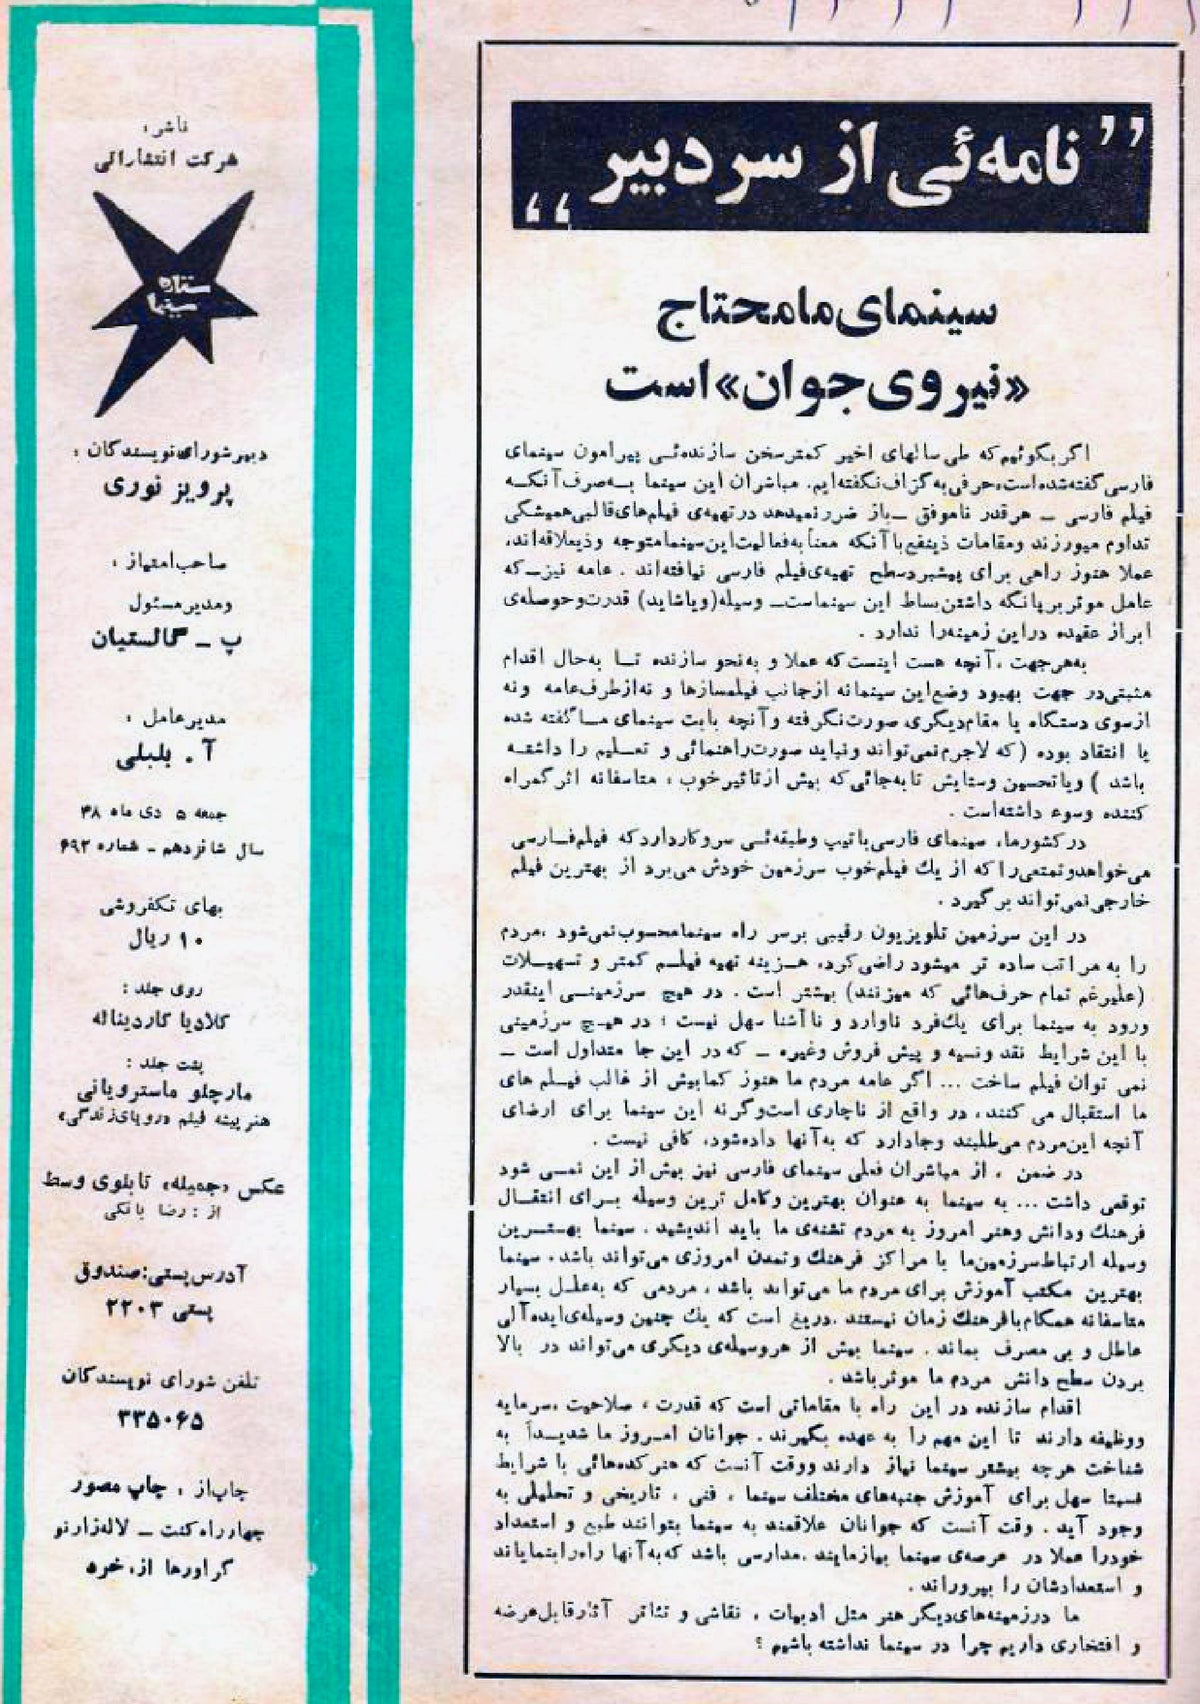 ”نامه‌ئی از سردبیر“
سینمای ما محتاج
«نیروی جوان» است
اگر بگوئیم که طی سالهای اخیر کمتر سخن سازنده‌ئی پیرامون سینمای
فارسی گفته شده است، حرفی به گزاف نگفته‌ایم. مباشران این سینما به صرف آنکه
فیلم فارسی ــ هرقدر ناموفق ــ باز ضرر نمیدهد در تهیه‌ی فیلم‌های قالبی همیشگی
تداوم میورزند و مقامات ذینفع با آنکه معناً به فعالیت این سینما متوجه و ذیعلاقه‌اند،
عملا هنوز راهی برای پیشبرد سطح تهیه‌ی فیلم فارسی نیافته‌اند . عامه نیز ــ که
عامل موثر برپا نگه داشتن بساط این سینماست ــ وسیله (و یا شاید) قدرت و حوصله‌ی
ابراز عقیده در این زمینه را ندارد .
به‌هر جهت ، آنچه هست اینست که عملا و به نحو سازنده تا به‌حال اقدام
مثبتی در جهت بهبود وضع این سینما نه از جانب فیلمسازها و نه از طرف عامه و نه
از سوی دستگاه یا مقام دیگری صورت نگرفته و آنچه بابت سینمای ما گفته شده
یا انتقاد بوده (که لاجرم نمی‌تواند و نباید صورت راهنمائی و تعلیم را داشته
باشد ) و یا تحسین و ستایش تا به جائی که بیش از تاثیر خوب ، متاسفانه اثر گمراه
کننده و سوء داشته است .
در کشور ما، سینمای فارسی با تیپ و طبقه‌ئی سر و کار دارد که فیلم فارسی
می‌خواهد و تمتعی را که از یك فیلم خوب سرزمین خودش می‌برد از بهترین فیلم
خارجی نمی‌تواند برگیرد .
در این سرزمین تلویزیون رقیبی بر سر راه سینما محسوب نمی‌شود ، مردم
را به مراتب ساده تر میشود راضی کرد، هزینه تهیه فیلم کمتر و تسهیلات
(علیرغم تمام حرف‌هائی که میزنند) بیشتر است . در هیچ سرزمینی اینقدر
ورود به سینما برای یك فرد ناوارد و ناآشنا سهل نیست ؛ در هیچ سرزمینی
با این شرایط نقد و نسیه و پیش فروش و غیره ــ که در این جا متداول است ــ
نمی توان فیلم ساخت ... اگر عامه مردم ما هنوز کمابیش از غالب فیلم های
ما استقبال می کنند ، در واقع از ناچاری است وگرنه این سینما برای ارضای
آنچه این مردم می‌طلبند و جا دارد که به آنها داده شود، کافی نیست .
در ضمن ، از مباشران فعلی سینمای فارسی نیز بیش از این نمی شود
توقعی داشت ... به سینما به عنوان بهترین و کامل ترین وسیله برای انتقال
فرهنك و دانش و هنر امروز به مردم تشنه‌ی ما باید اندیشید . سینما بهترین
وسیله ارتباط سرزمین ما با مراکز فرهنك و تمدن امروزی می‌تواند باشد ، سینما
بهترین مکتب آموزش برای مردم ما می‌تواند باشد ، مردمی که به علل بسیار
متاسفانه همگام با فرهنك زمان نیستند . دریغ است که یك چنین وسیله‌ی ایده‌آلی
عاطل و بی مصرف بماند . سینما بیش از هر وسیله‌ی دیگری می‌تواند در بالا
بردن سطح دانش مردم ما موثر باشد .
اقدام سازنده در این راه با مقاماتی است که قدرت ، صلاحیت ، سرمایه
و وظیفه دارند تا این مهم را به عهده بگیرند . جوانان امروز ما شدیداً به
شناخت هرچه بیشتر سینما نیاز دارند و وقت آنست که هنرکده‌هائی با شرایط
نسبتا سهل برای آموزش جنبه‌های مختلف سینما ، فنی ، تاریخی و تحلیلی به
وجود آید . وقت آنست که جوانان علاقمند به سینما بتوانند طبع و استعداد
خود را عملا در عرصه‌ی سینما بیازمایند . مدارسی باشد که به آنها راه را بنمایاند
و استعدادشان را بپروراند .
ما در زمینه‌های دیگر هنر مثل ادبیات ، نقاشی و تئاتر آثار قابل عرضه
و افتخاری داریم چرا در سینما نداشته باشیم ؟
ناشر :
شرکت انتشاراتی
ستاره
سینما
دبیر شورای نویسندگان :
پرویز نوری
صاحب امتیاز :
و مدیر مسئول
پ ــ گالستیان
مدیر عامل :
آ . بلبلی
جمعه ۵ دی ماه ۴۸
سال شانزدهم ــ شماره ۶۹۲
بهای تکفروشی
۱۰ ریال
روی جلد :
کلادیا کاردیناله
پشت جلد :
مارچلو ماسترویانی
هنرپیشه فیلم «رویای زندگی»
عکس «جمیله» تابلوی وسط
از : رضا بانکی
آدرس پستی: صندوق
پستی ۲۲۰۳
تلفن شورای نویسندگان
۳۳۵۰۶۵
چاپ از ، چاپ مصور
چهارراه کنت ــ لاله‌زارنو
گراورها از، خره